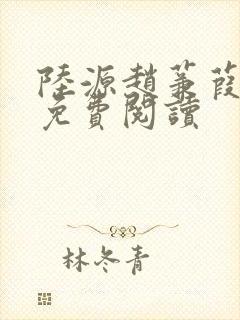 陸源趙蒹葭
免費閱讀
林冬青